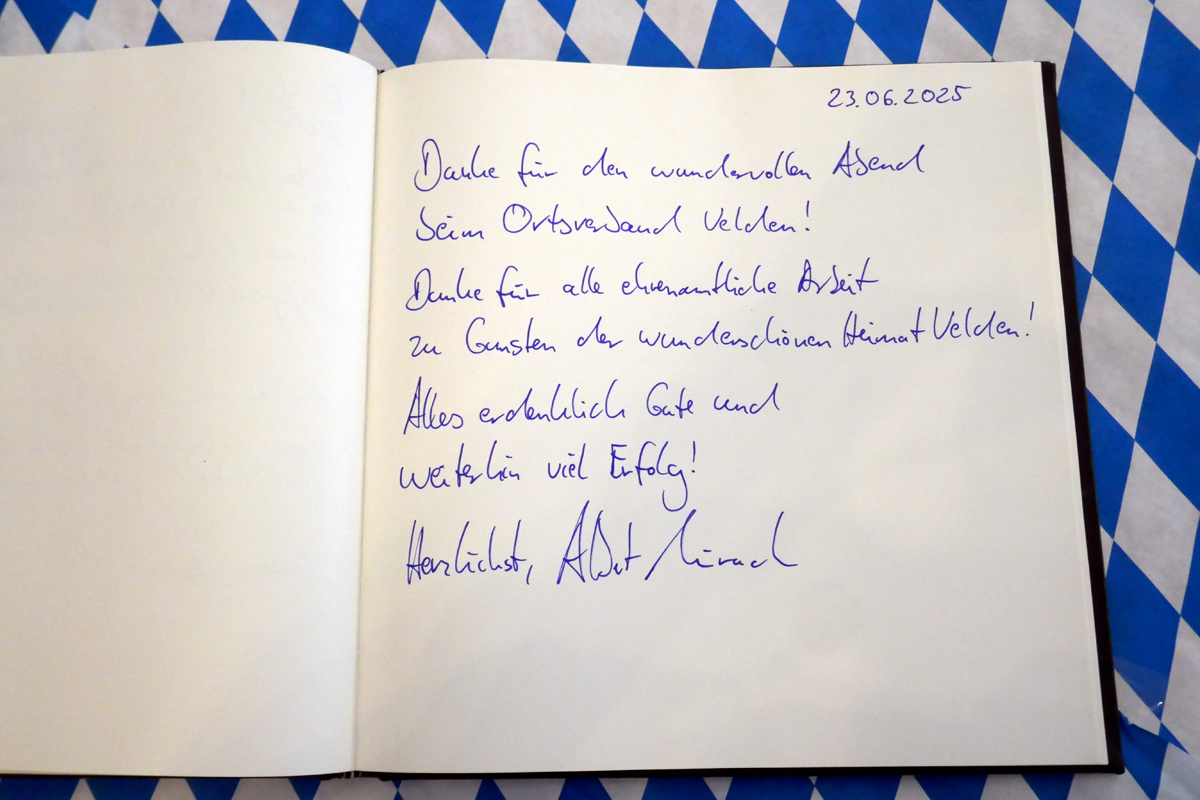 23.06.2025
Danke für den wundervollen Abend
beim Ortsverband Velden!
Danke für alle ehrenamtliche Arbeit
zu Gunsten der wunderschönen Heimat Velden!
Alles erdenklich Gute und
weiterhin viel Erfolg!
Herzlichst,